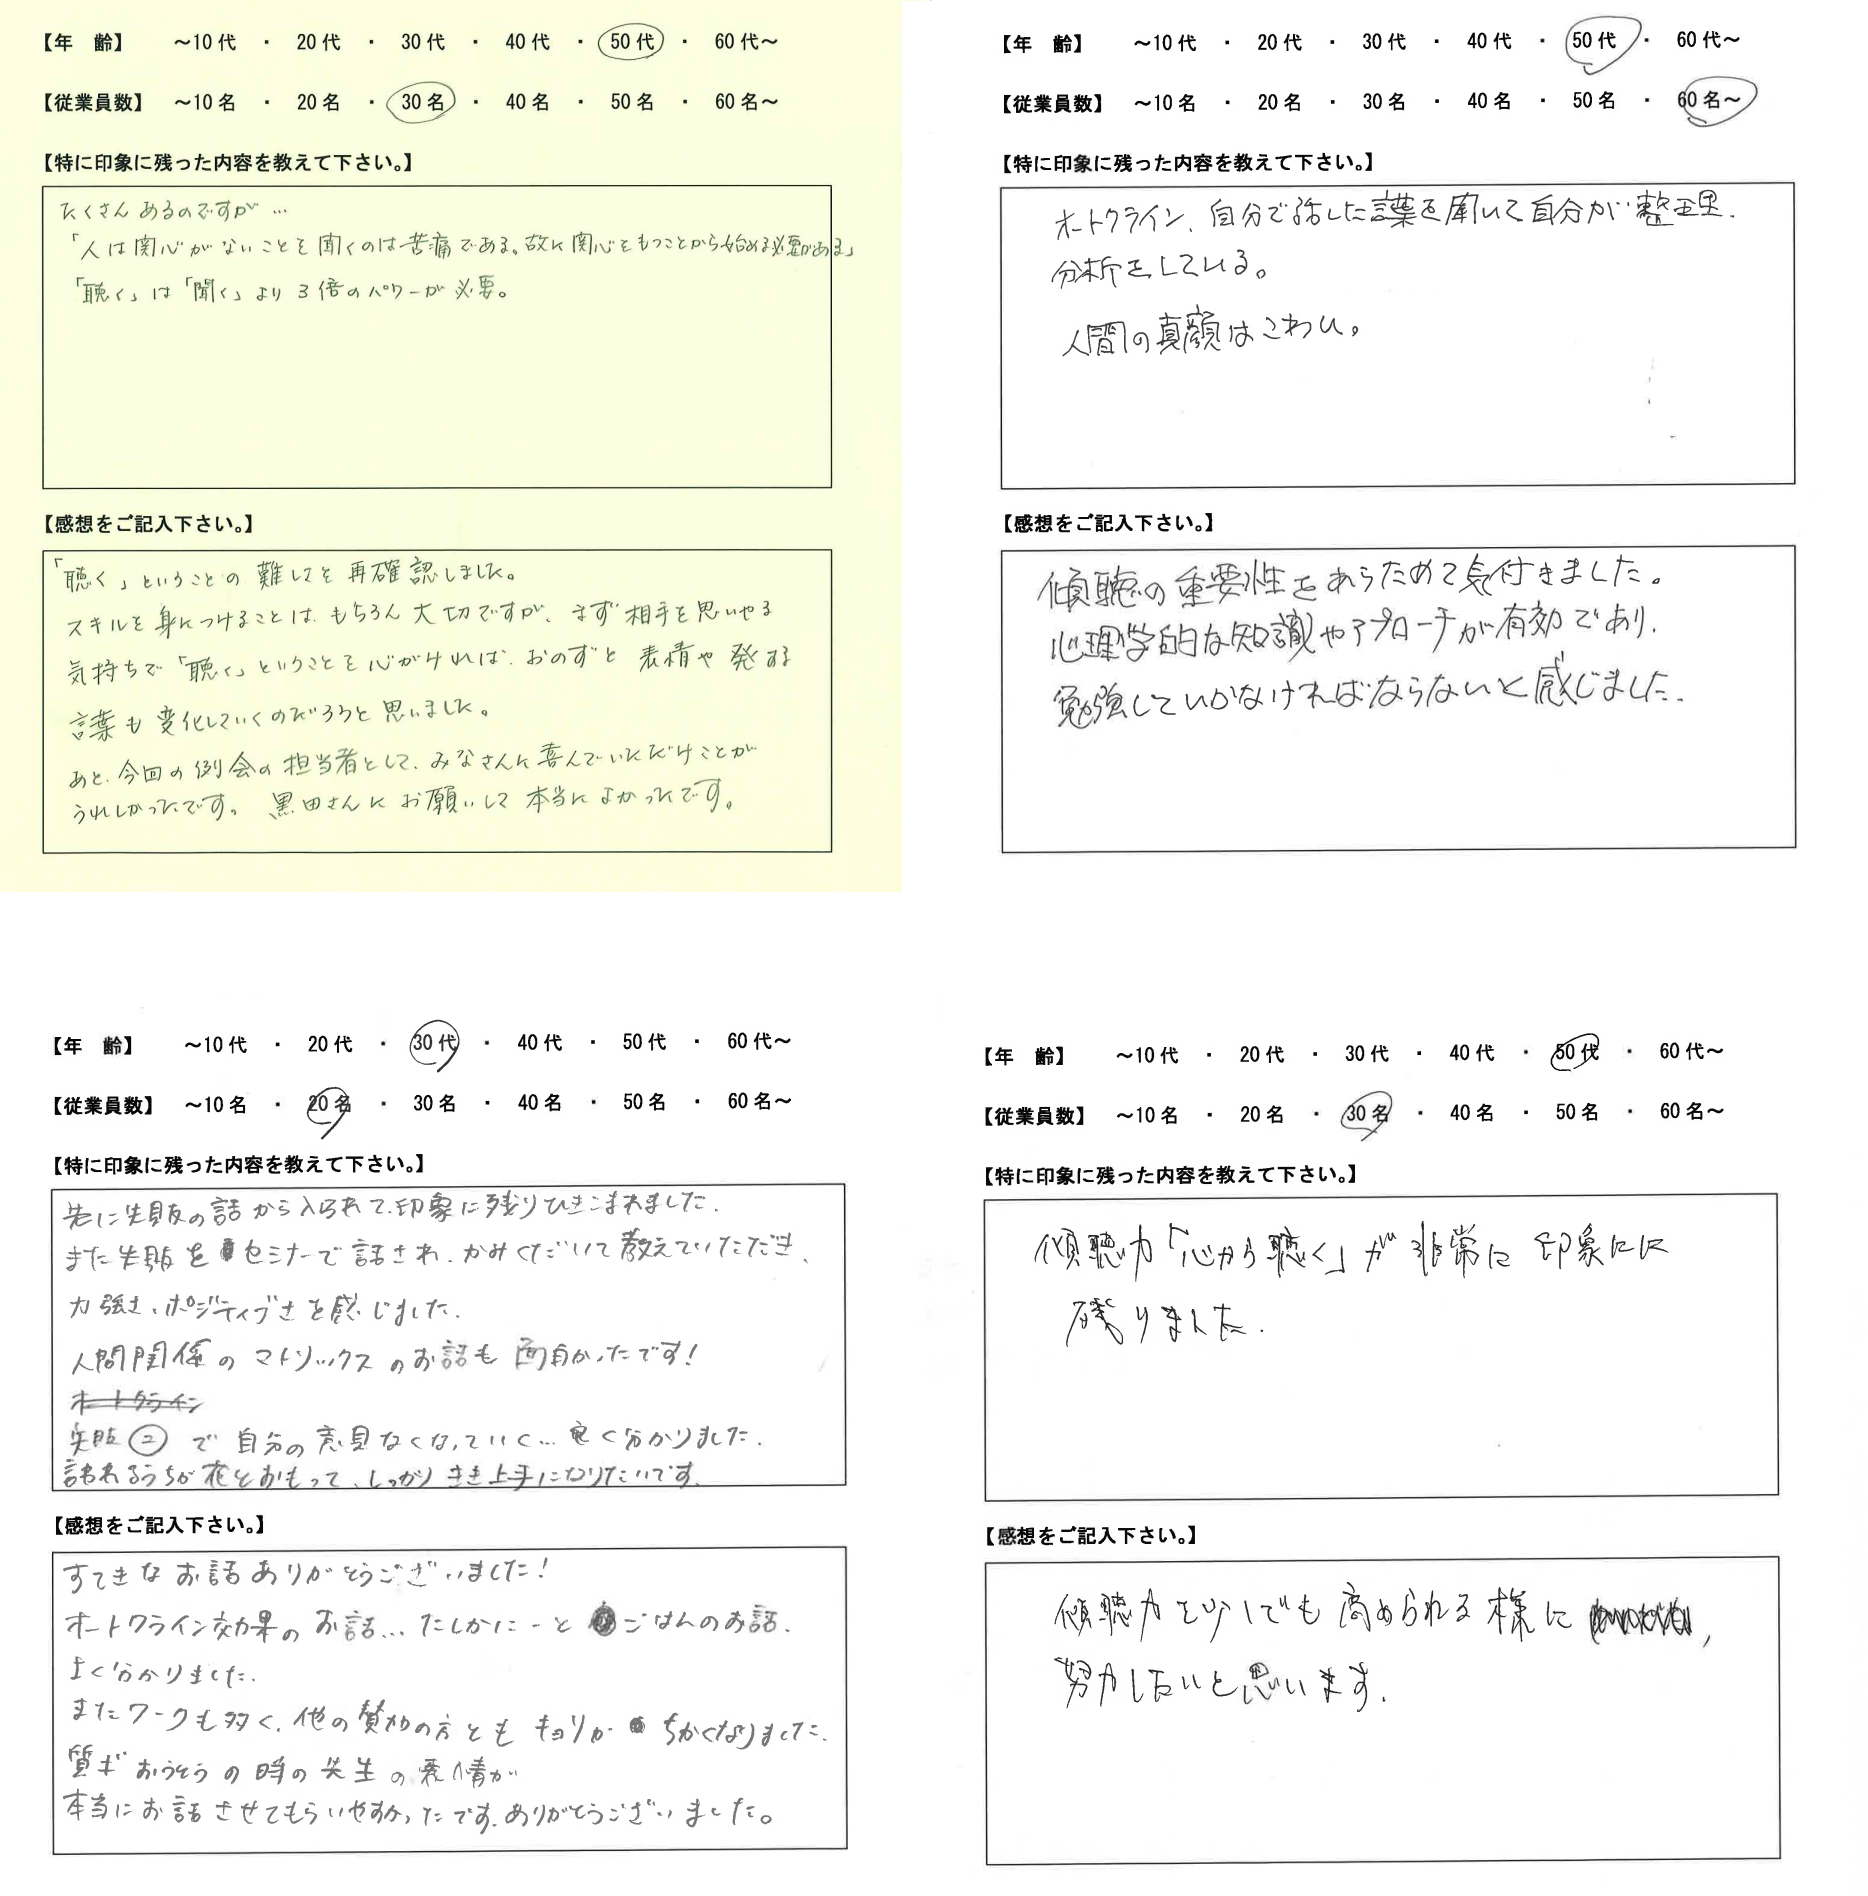 【年　齢】　～10代　・　20代　・　30代　・　40代　・　50代　・　60代～
【従業員数】　～10名　・　20名　・　30名　・　40名　・　50名　・　60名～
【特に印象に残った内容を教えて下さい。】
たくさんあるのですが…
「人は関心がないことを聞くのは苦痛である。故に関心をもつことから始める必要がある」
「聴く」は「聞く」より3倍のパワーが必要。
【感想をご記入下さい。】
「聴く」ということの難しさを再確認しました。
スキルを身につけることは、もちろん大切ですが、まず相手を思いやる
気持ちで「聴く」ということを心がければ、おのずと表情や発する
言葉も変化していくのだろうと思いました。
あと、今回の例会の担当者として、みなさんに喜んでいただけことが
うれしかったです。黒田さんにお願いして本当によかったです。
【年　齢】　～10代　・　20代　・　30代　・　40代　・　50代　・　60代～
【従業員数】　～10名　・　20名　・　30名　・　40名　・　50名　・　60名～
【特に印象に残った内容を教えて下さい。】
オートクライン、自分で話した言葉を聞いて自分が整理、
分析をしている。
人間の真顔はこわい。
【感想をご記入下さい。】
傾聴の重要性をあらためて気付きました。
心理学的な知識やアプローチが有効であり、
勉強していかなければならないと感じました。
【年　齢】　～10代　・　20代　・　30代　・　40代　・　50代　・　60代～
【従業員数】　～10名　・　20名　・　30名　・　40名　・　50名　・　60名～
【特に印象に残った内容を教えて下さい。】
先に失敗の話から入られて、印象に残りひきこまれました。
また失敗をセミナーで話され、かみくだいて教えていただき、
力強さ、ポジティブさを感じました。
人間関係のマトリックスのお話も面白かったです！
オートクライン
失敗②で自分の意見なくなっていく…良く分かりました。
話れるうちが花とおもって、しっかりきき上手になりたいです。
【感想をご記入下さい。】
すてきなお話ありがとうございました！
オートクライン効果のお話…たしかにーとごはんのお話、
よく分かりました。
またワークも多く、他の賛加の方ともキョリがちかくなりました。
質ギおうとうの時の先生の表情が
本当にお話させてもらいやすかったです。ありがとうございました。
【年　齢】　～10代　・　20代　・　30代　・　40代　・　50代　・　60代～
【従業員数】　～10名　・　20名　・　30名　・　40名　・　50名　・　60名～
【特に印象に残った内容を教えて下さい。】
傾聴力「心から聴く」が非常に印象にに
残りました。
【感想をご記入下さい。】
傾聴力を少しでも高められる様に、
努力したいと思います。